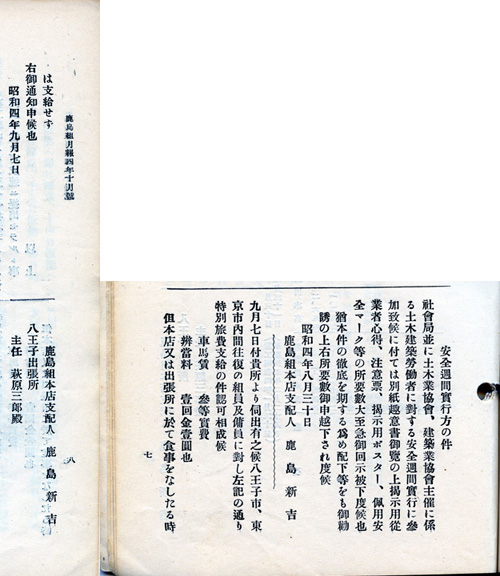 安全週間實行方の件
社會局並に土木業協會、建築業協會主催に係
る土木建築勞働者に對する安全週間實行に參
加致候に付ては別紙趣意書御覽の上揭示用從
業者心得、注意票、揭示用ポスター、佩用安
全マーク等の所要數大至急御回示被下度候也
猶本件の徹底を期する爲め配下等をも御勸
誘の上右所要數御申越下され度候
昭和四年八月三十日
鹿島組本店支配人 鹿島新吉
九月七日付貴所より伺出有之候八王子市、東
京市內間往復の組員及傭員に對し左記の通り
特別旅費支給の件認可相成候
車馬賃 參等實費
辨當料 壹回金壹圓也
但本店又は出張所に於て食事をなしたる時
七
鹿島組月報四年十月號
は支給せず
右御通知申候也
昭和四年九月七日
鹿島組本店支配人 鹿島新吉
八王子出張所
主任 萩原三郎殿
八